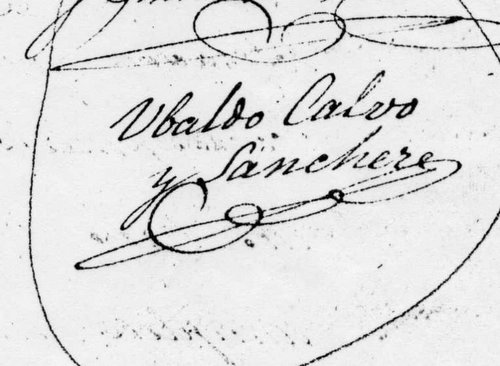 Ubaldo Calvo
y Sánchere